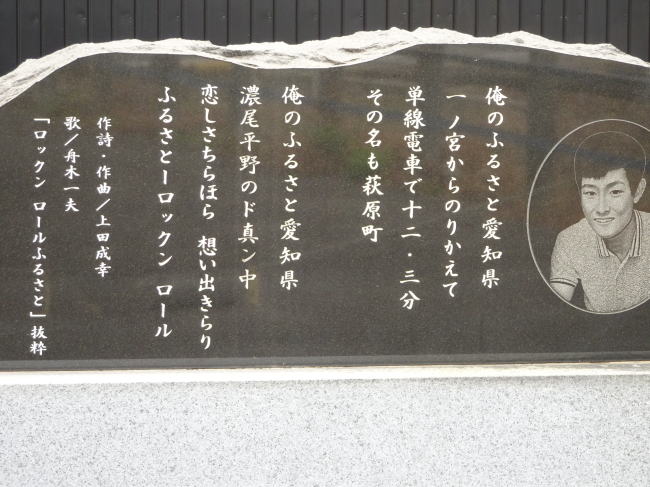 俺のふるさと愛知県
一ノ宮からのりかえて
単線電車で十二・三分
その名も萩原町
俺のふるさと愛知県
濃尾平野のド真ン中
恋しさちらほら 想い出きらり
ふるさとーロックン ロール
作詩・作曲/上田成幸
歌/舟木一夫
「ロックン ロールふるさと」抜粋